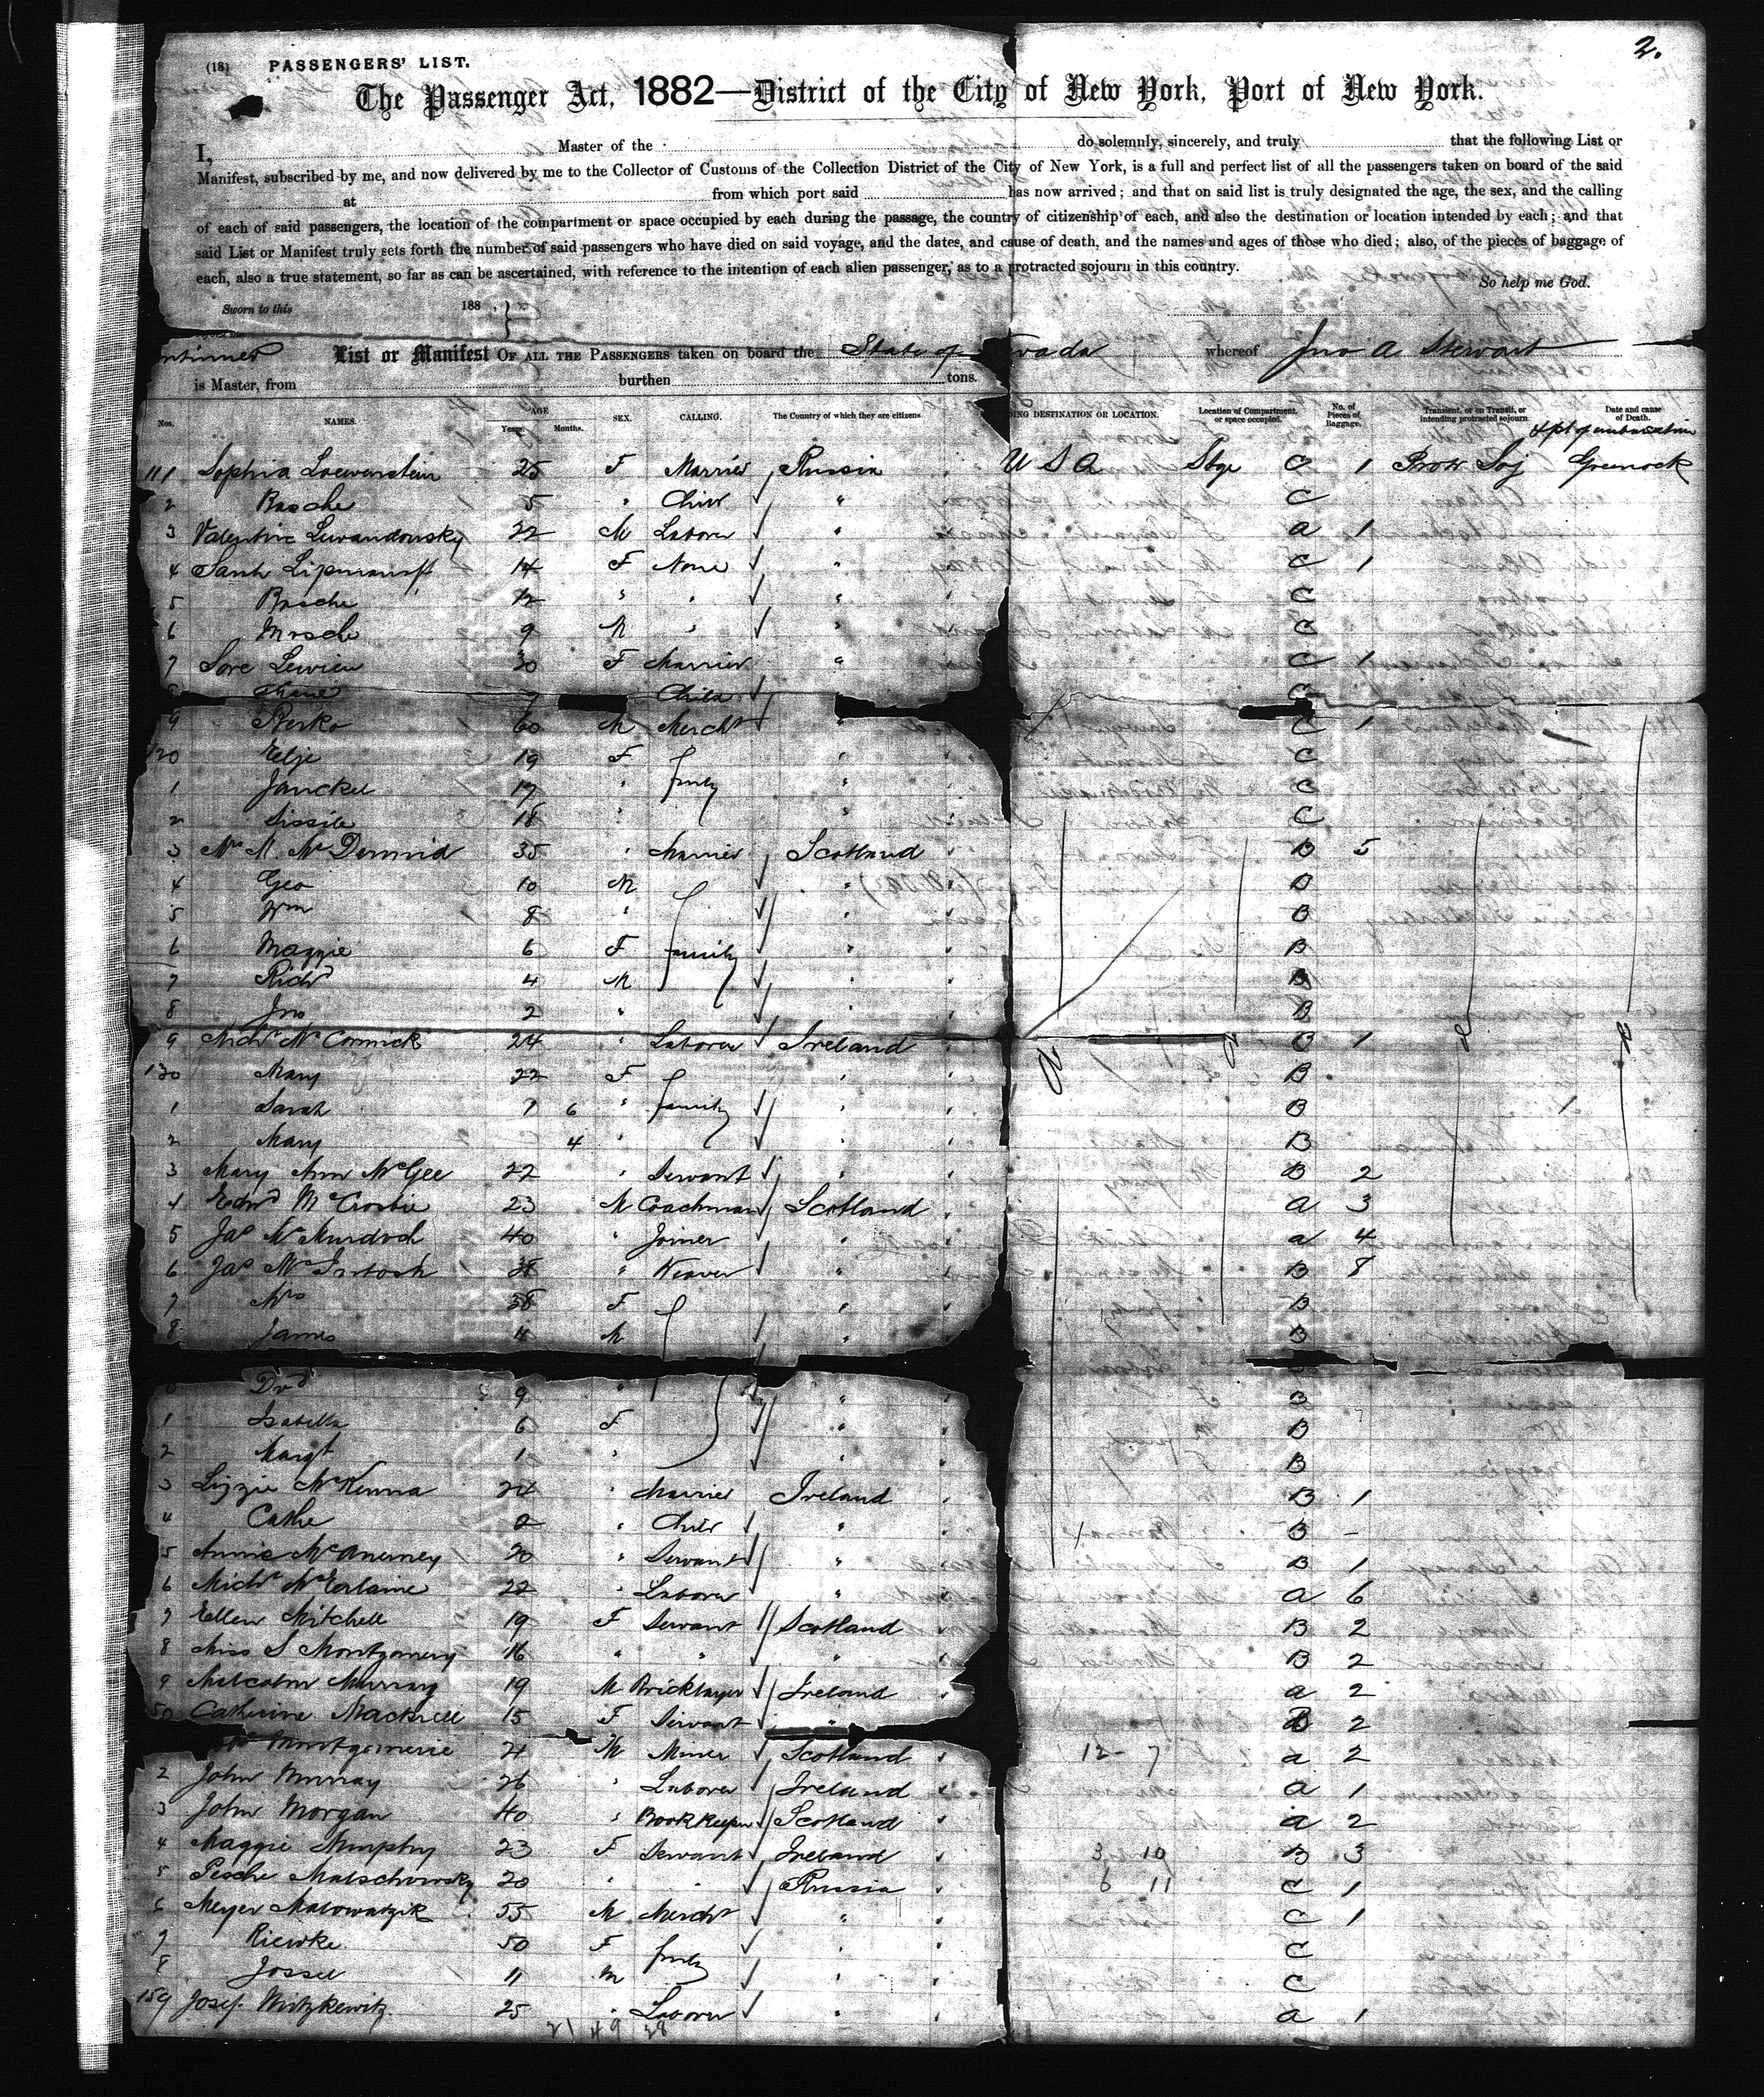 2.
(18) PASSENGERS' LIST.
The Passenger Act, 1882—District of the City of New York, Port of New York.
I, Master of the do solemnly, sincerely, and truly that the following List or
Manifest, subscribed by me, and now delivered by me to the Collector of Customs of the Collection District of the City of New York, is a full and perfect list of all the passengers taken on board of the said
at from which port said has now arrived; and that on said list is truly designated the age, the sex, and the calling
of each of said passengers, the location of the compartment or space occupied by each during the passage, the country of citizenship of each, and also the destination or location intended by each; and that
said List or Manifest truly sets forth the number of said passengers who have died on said voyage, and the dates, and cause of death, and the names and ages of those who died; also, of the pieces of baggage of
each, also a true statement, so far as can be ascertained, with reference to the intention of each alien passenger, as to a protracted sojourn in this country.
So help me God.
Sworn to this 188
List or Manifest OF ALL THE PASSENGERS taken on board the State of vada whereof Jno A Stewart
is Master, from burthen tons.
Nos. NAMES. AGE Years. Months. SEX. CALLING. The Country of which they are citizens. DESTINATION OR LOCATION. Location of Compartment or space occupied. No. of Pieces of Baggage. Transient, or on Transit, or intending protracted sojourn. Date and cause of Death.
& pt of embarcation
111 Sophia Loewenstein 25 F Married Russia U S A Stge C 1 Prot Soj Greenock
2 Rasche 5 " Child " C
3 Valentin Lewandowsky 22 M Laborer " a 1
4 Sarah 14 F None " C 1
5 Rasche 12 " " " C
6 Mosche 9 M " " C
7 Sore Lewien 30 F Married " C 1
Child C
9 Berko 60 M Mercht " C 1
120 Elje 19 F " C
1 Janckel 17 " fmly " C
2 Sissile 18 " " C
3 Mrs M. McDermid 35 " Married Scotland B 5
4 Geo 10 M " B
5 Wm 8 " " B
6 Maggie 6 F family " B
7 Richd 4 M " B
8 Jno 2 " " B
9 Michl McCormick 24 " Laborer Ireland B 1
130 Mary 22 F " B
1 Sarah 1 6 " family " B
2 Mary 4 " " B
3 Mary Ann McGee 22 " Servant " B 2
4 Edwd McCrosbie 23 M Coachman Scotland a 3
5 Jas McMurdoch 40 " Joiner " a 4
6 Jas McIntosh 38 " Weaver " B 8
7 Mrs 38 F " B
8 James 11 M " B
0 Dvd 9 " " B
1 Isabella 6 F " B
2 Margt 1 " " B
3 Lizzie McKenna 24 " Married Ireland B 1
4 Cathe 2 " Child " B -
5 Annie McAnerney 20 " Servant " B 1
6 Michl McErlaine 22 " Laborer " a 6
7 Ellen Mitchell 19 F Servant Scotland B 2
8 Miss S Montgomery 16 " " " B 2
9 Malcolm Murray 19 M Bricklayer Ireland a 2
50 Catherine Mackrell 15 F Servant " B 2
Montgomerie 21 M Miner Scotland 12 - 7 a 2
2 John Murray 26 " Laborer Ireland a 1
3 John Morgan 40 " Bookkeeper Scotland a 2
4 Maggie Murphy 23 F Servant Ireland 3 10 B 3
5 Pesche Malschowsky 20 " " Russia 6 11 C 1
6 Meyer Malowatzik 55 M Mercht " C 1
7 Riewke 50 F fmly " C
8 Jossel 11 M " C
159 Josef Mutzkewitz 25 " Laborer " a 1
21 49 28